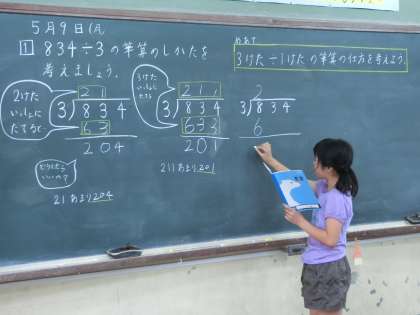 5月9日(月)
1 834÷3の筆算のしかたを
考えましょう。
めあて
3けた÷1けたの筆算の仕方を考えよう。
2けた
いっしょに
たてると
21
3)834
63
204
どうしたら
いいの?
21あまり204
3けた
いっしょに
たてると
211
3)834
633
201
211あまり201
2
3)834
6